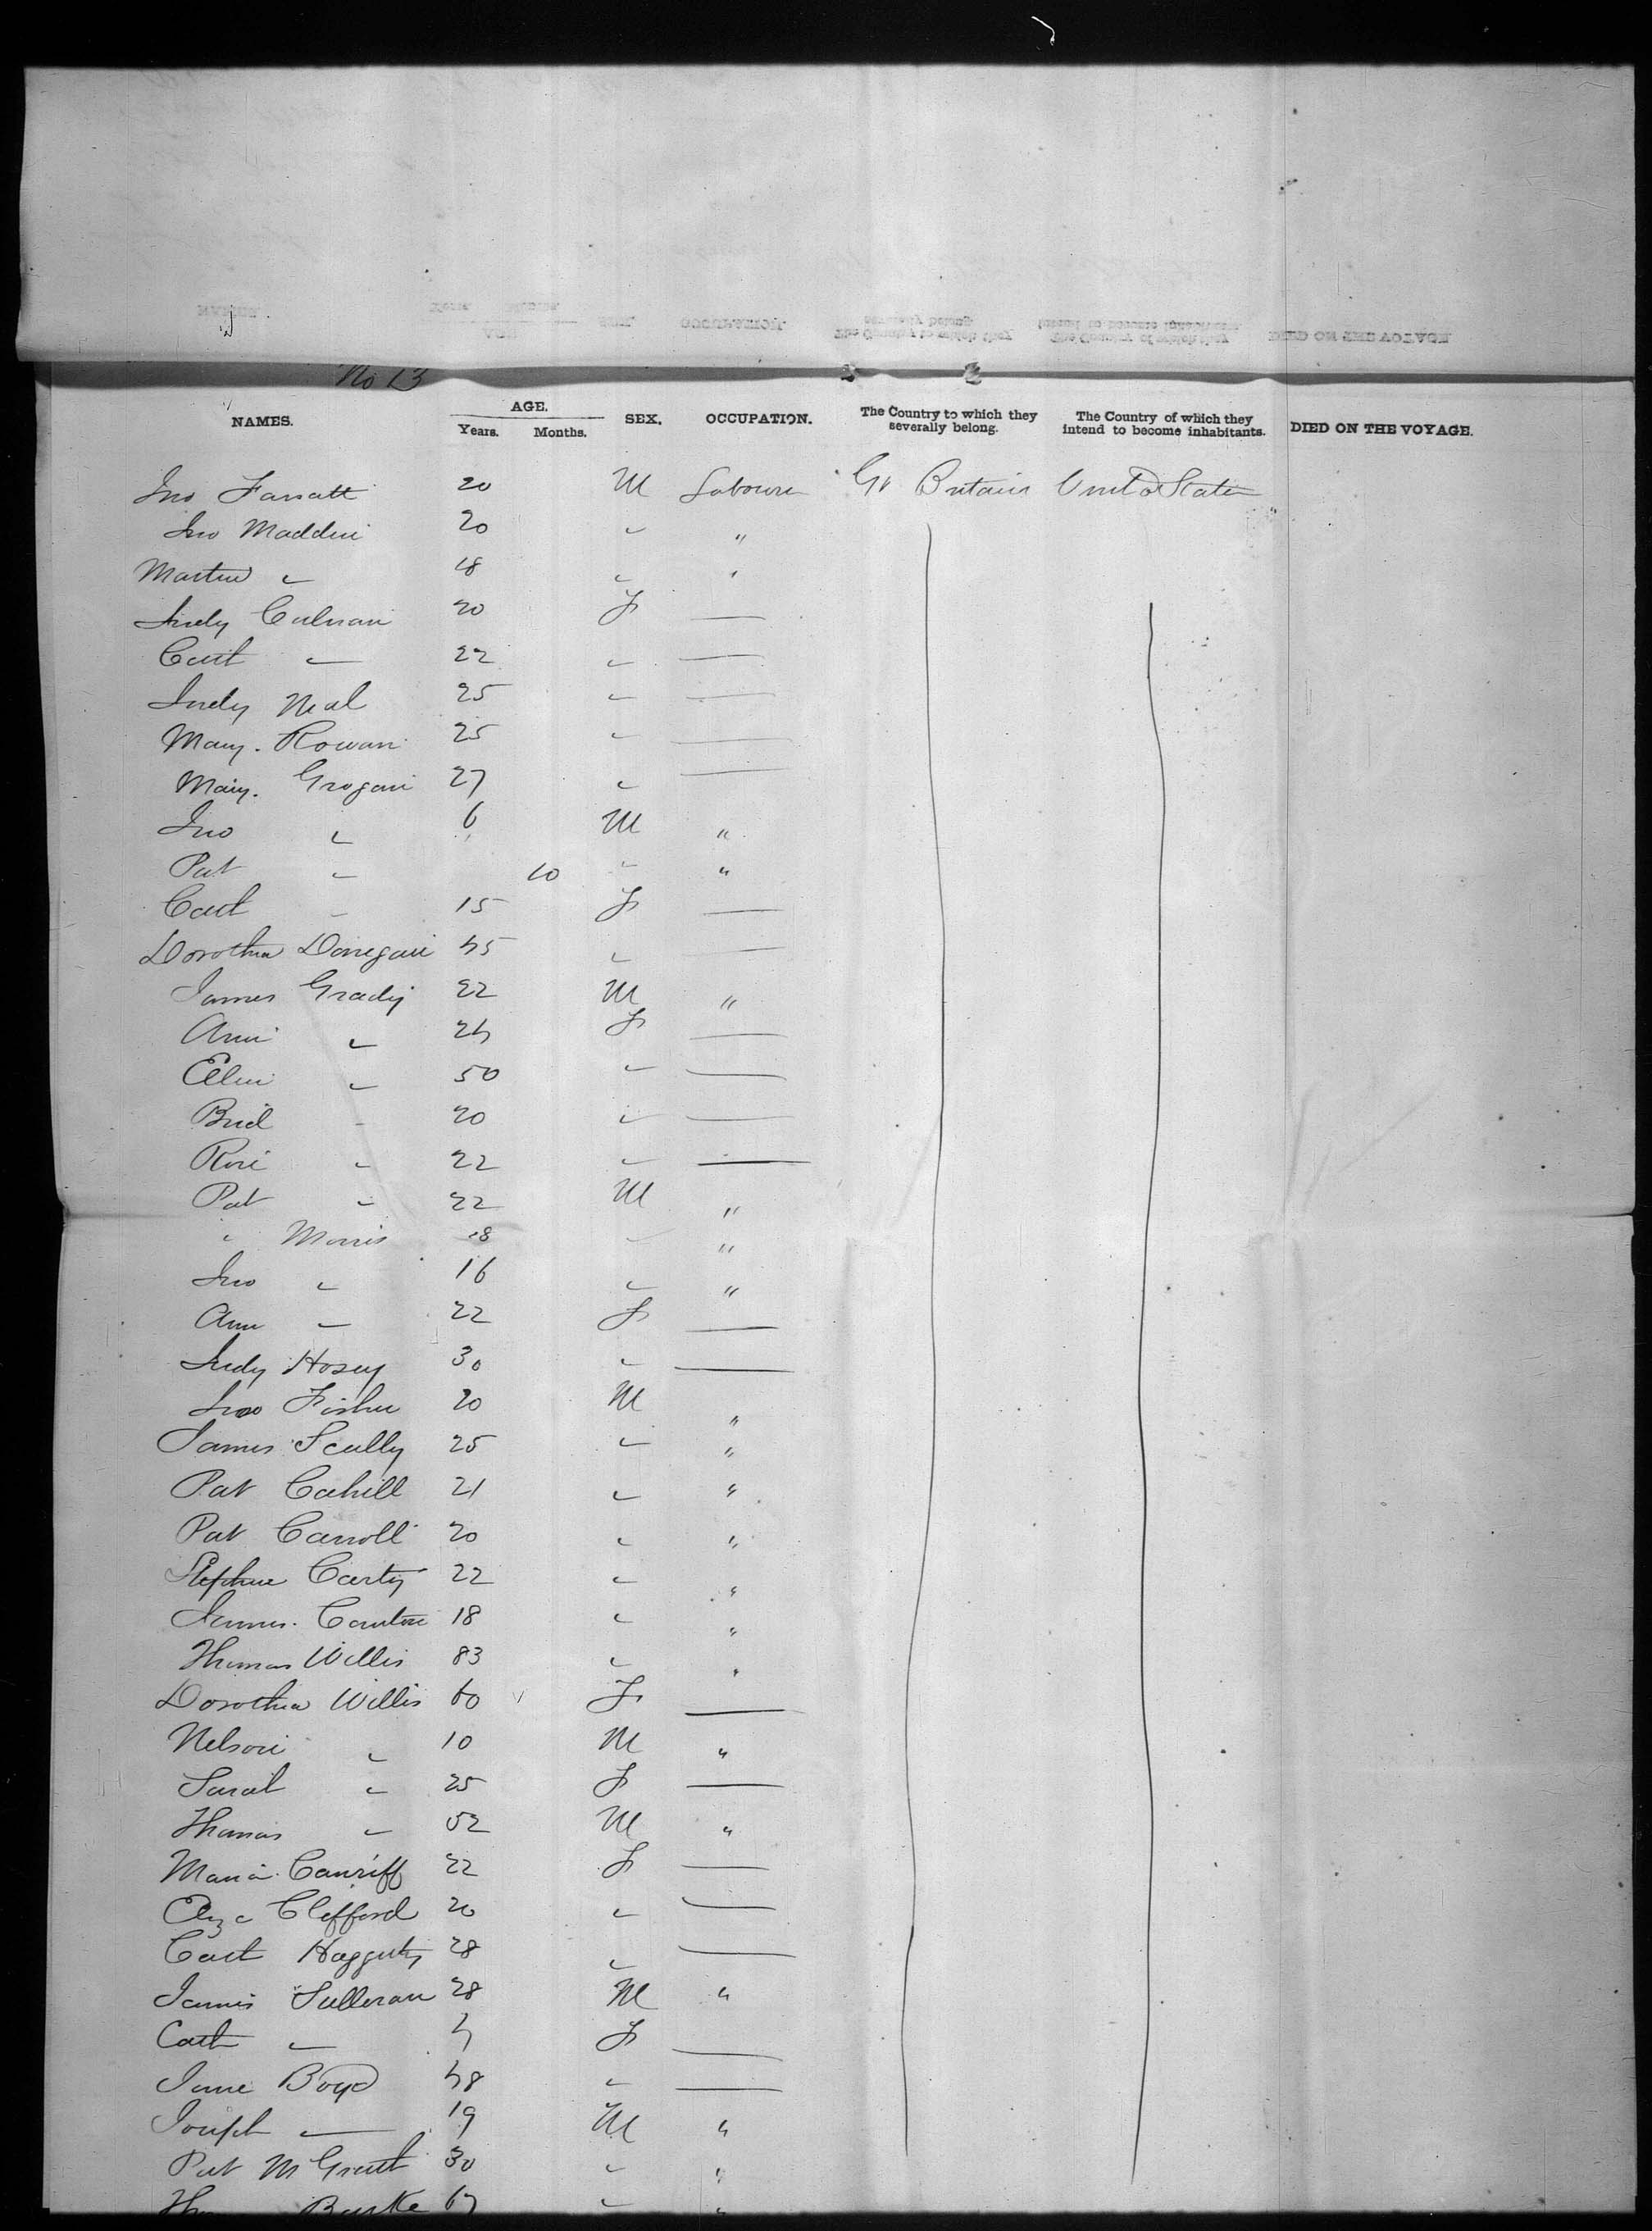 No 13
NAMES. AGE. Years. Months. SEX. OCCUPATION. The Country to which they severally belong. The Country of which they intend to become inhabitants. DIED ON THE VOYAGE.
Jno 20 M Labourer Gt Britain United States
Jno Madden 20 " "
Martin " 18 " "
Judy Culnan 20 F —
Cath " 22 " —
Judy Neal 25 " —
Mary. Rowan 25 " —
Mary. Grogan 27 " —
Jno " 6 M "
Pat " 10 " "
Cath " 15 F —
Dorothea Donegan 45 " —
James Grady 22 M "
Ann " 24 F —
Ellen " 50 " —
Brid " 20 " —
Rose " 22 " —
Pat " 22 M "
" Morris 18 " "
Jno " 16 " "
Ann " 22 F —
Judy Hosey 30 " —
Jno Fisher 20 M "
James Scully 25 " "
Pat Cahill 21 " "
Pat Carroll 20 " "
Stephen Carty 22 " "
James. 18 " "
Thomas Willis 83 " "
Dorothea Willis 60 F —
Nelson " 10 M "
Sarah " 25 F —
Thomas " 52 M "
Maria Canriff 22 F —
Eliza Clifford 20 " —
Cath Haggerty 28 " —
James Sullivan 28 M "
Cath " 4 F —
Jane Boyd 48 " —
Joseph " 19 M "
Pat McGrath 30 " "
Burke 67 " "